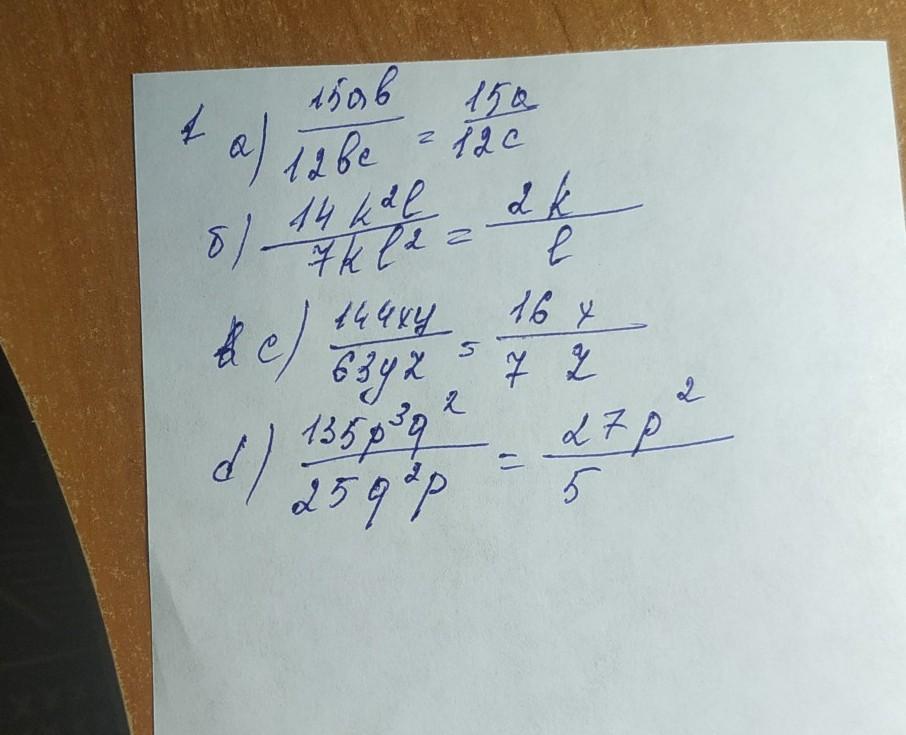 1 а) 15ab/12bc = 15a/12c
б) 14k²l/7kl² = 2k/l
c) 144xy/63yz = 16x/7z
d) 135p³q²/25q²p = 27p²/5